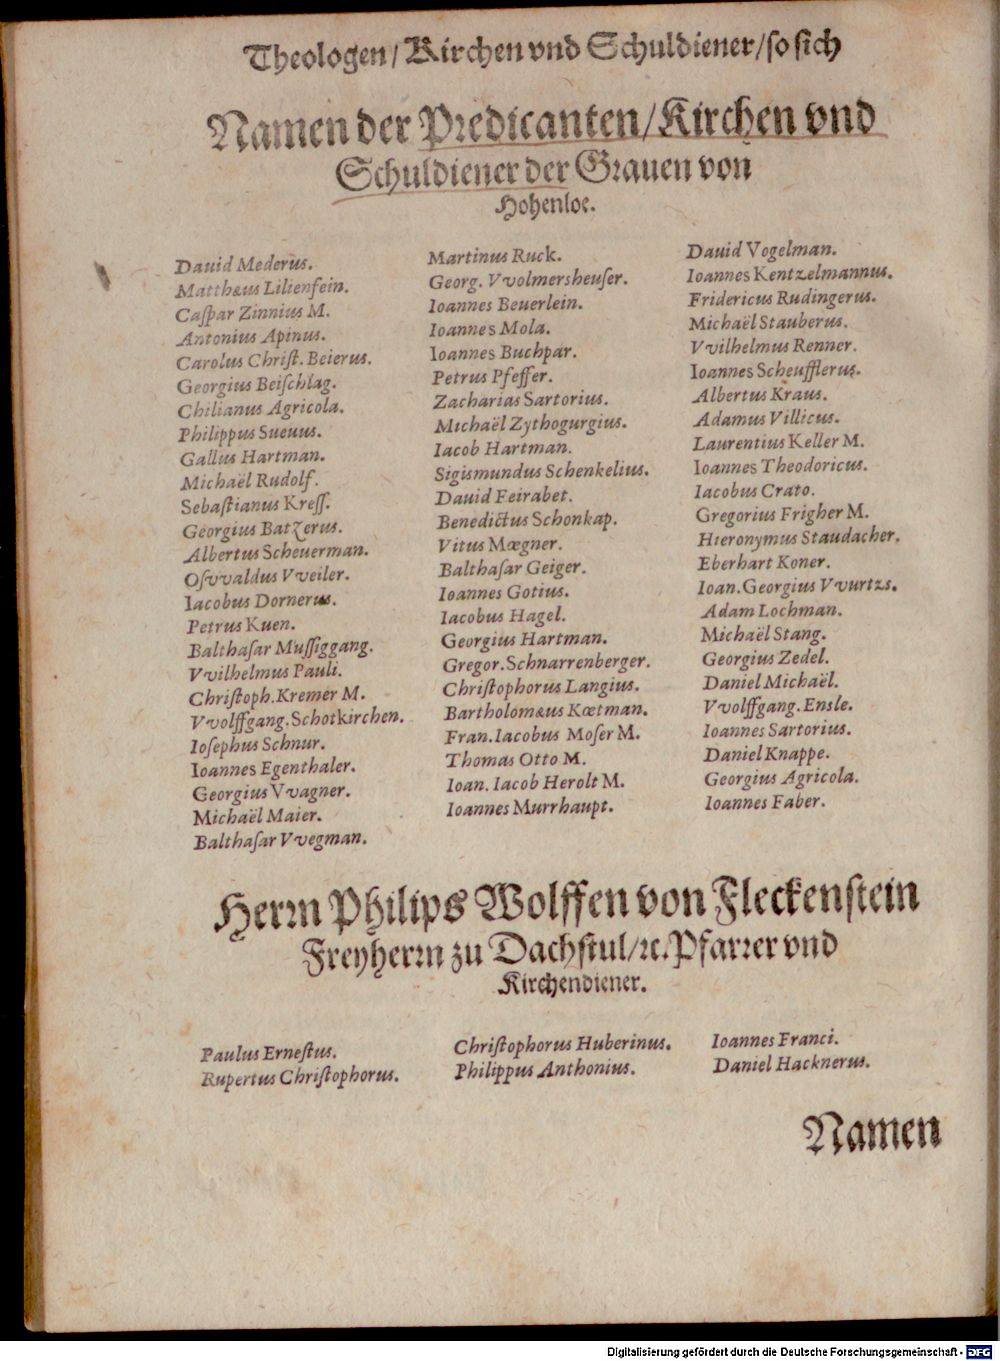 Theologen/Kirchen vnd Schuldiener/so sich
Namen der Predicanten/Kirchen vnd
Schuldiener der Grauen von
Hohenloe.
Dauid Mederus.
Matthæus Lilienfein.
Caſpar Zinnius M.
Antonius Apinus.
Carolus Chriſt. Beierus.
Georgius Beiſchlag.
Chilianus Agricola.
Philippus Sueuus.
Gallus Hartman.
Michaël Rudolf.
Sebaſtianus Kreſſ.
Georgius Batzerus.
Albertus Scheuerman.
Oſvvaldus Vveiler.
Iacobus Dornerus.
Petrus Kuen.
Balthaſar Muſſiggang.
Vvilhelmus Pauli.
Chriſtoph. Kremer M.
Vvolffgang. Schotkirchen.
Ioſephus Schnur.
Ioannes Egenthaler.
Georgius Vvagner.
Michaël Maier.
Balthaſar Vvegman.
Martinus Ruck.
Georg. Vvolmersheuſer.
Ioannes Beuerlein.
Ioannes Mola.
Ioannes Buchpar.
Petrus Pfeffer.
Zacharias Sartorius.
Michaël Zythogurgius.
Iacob Hartman.
Sigismundus Schenkelius.
Dauid Feirabet.
Benedictus Schonkap.
Vitus Mœgner.
Balthaſar Geiger.
Ioannes Gotius.
Iacobus Hagel.
Georgius Hartman.
Gregor. Schnarrenberger.
Chriſtophorus Langius.
Bartholomæus Kœtman.
Fran. Iacobus Moſer M.
Thomas Otto M.
Ioan. Iacob Herolt M.
Ioannes Murrhaupt.
Dauid Vogelman.
Ioannes Kentzelmannus.
Fridericus Rudingerus.
Michaël Stauberus.
Vvilhelmus Renner.
Ioannes Scheufflerus.
Albertus Kraus.
Adamus Villicus.
Laurentius Keller M.
Ioannes Theodoricus.
Iacobus Crato.
Gregorius Frigher M.
Hieronymus Staudacher.
Eberhart Koner.
Ioan. Georgius Vvurtzs.
Adam Lochman.
Michaël Stang.
Georgius Zedel.
Daniel Michaël.
Vvolffgang. Ensle.
Ioannes Sartorius.
Daniel Knappe.
Georgius Agricola.
Ioannes Faber.
Herrn Philips Wolffen von Fleckenſtein
Freyherrn zu Dachſtul/ꝛc. Pfarrer vnd
Kirchendiener.
Paulus Erneſtus.
Rupertus Chriſtophorus.
Chriſtophorus Huberinus.
Philippus Anthonius.
Ioannes Franci.
Daniel Hacknerus.
Namen
Digitalisierung gefördert durch die Deutsche Forschungsgemeinschaft - DFG